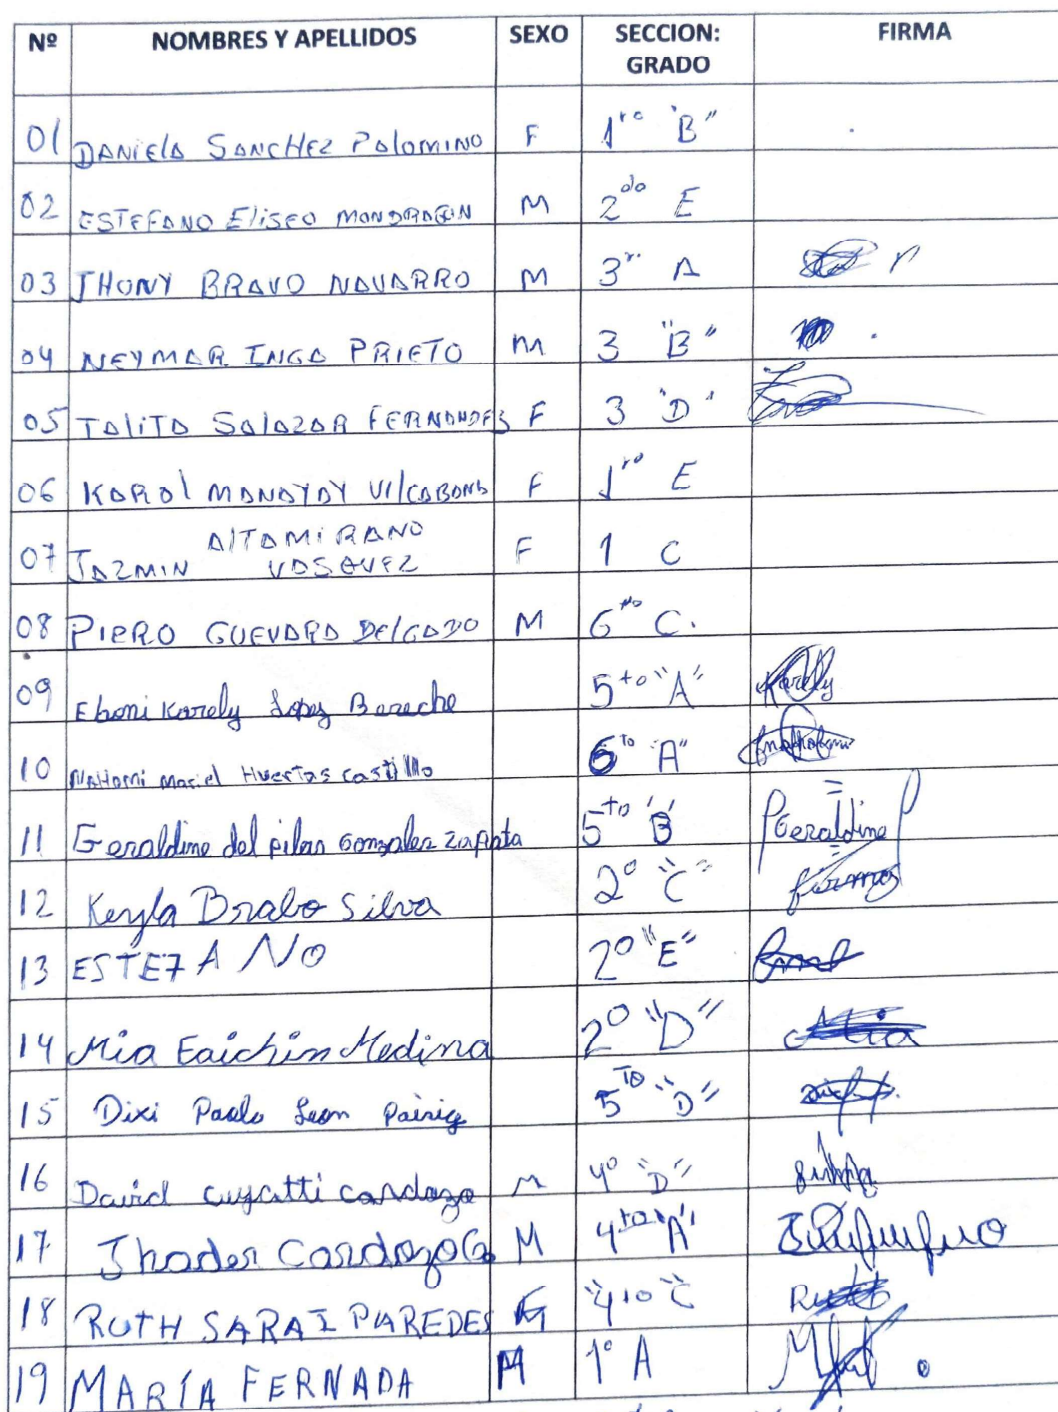 Nº NOMBRES Y APELLIDOS SEXO SECCION: GRADO FIRMA
01 DANIELA SANCHEZ PALOMINO F 1ro "B"
02 ESTEFANO ELISEO MONDRAGON M 2do E
03 JHONY BRAVO NAVARRO M 3r. A
04 NEYMAR INGA PRIETO M 3 "B"
05 TALITA SALAZAR FERNANDES F 3 "D"
06 KAROL MANAYAY VILCABANA F 1ro E
07 JAZMIN ALTAMIRANO VASQUEZ F 1 C
08 PIERO GUEVARA DELGADO M 6to C.
09 Eboni Karely Lopez Bereche 5to "A" Karely
10 Nahomi Mariel Huertas Castillo 6to "A"
11 Geraldine del pilar Gonzales Zapata 5to "B" Geraldine
12 Keyla Brabo Silva 2º "C"
13 ESTEFANO 2º "E"
14 Mia Eaichin Medina 2º "D" Mia
15 Dixi Paola Leon 5TO "D"
16 David cuycatti cardozo M 4º "D"
17 Jhader Cardozo G M 4to "A"
18 RUTH SARAI PAREDES "4to C" Ruth
19 MARÍA FERNADA M 1º A